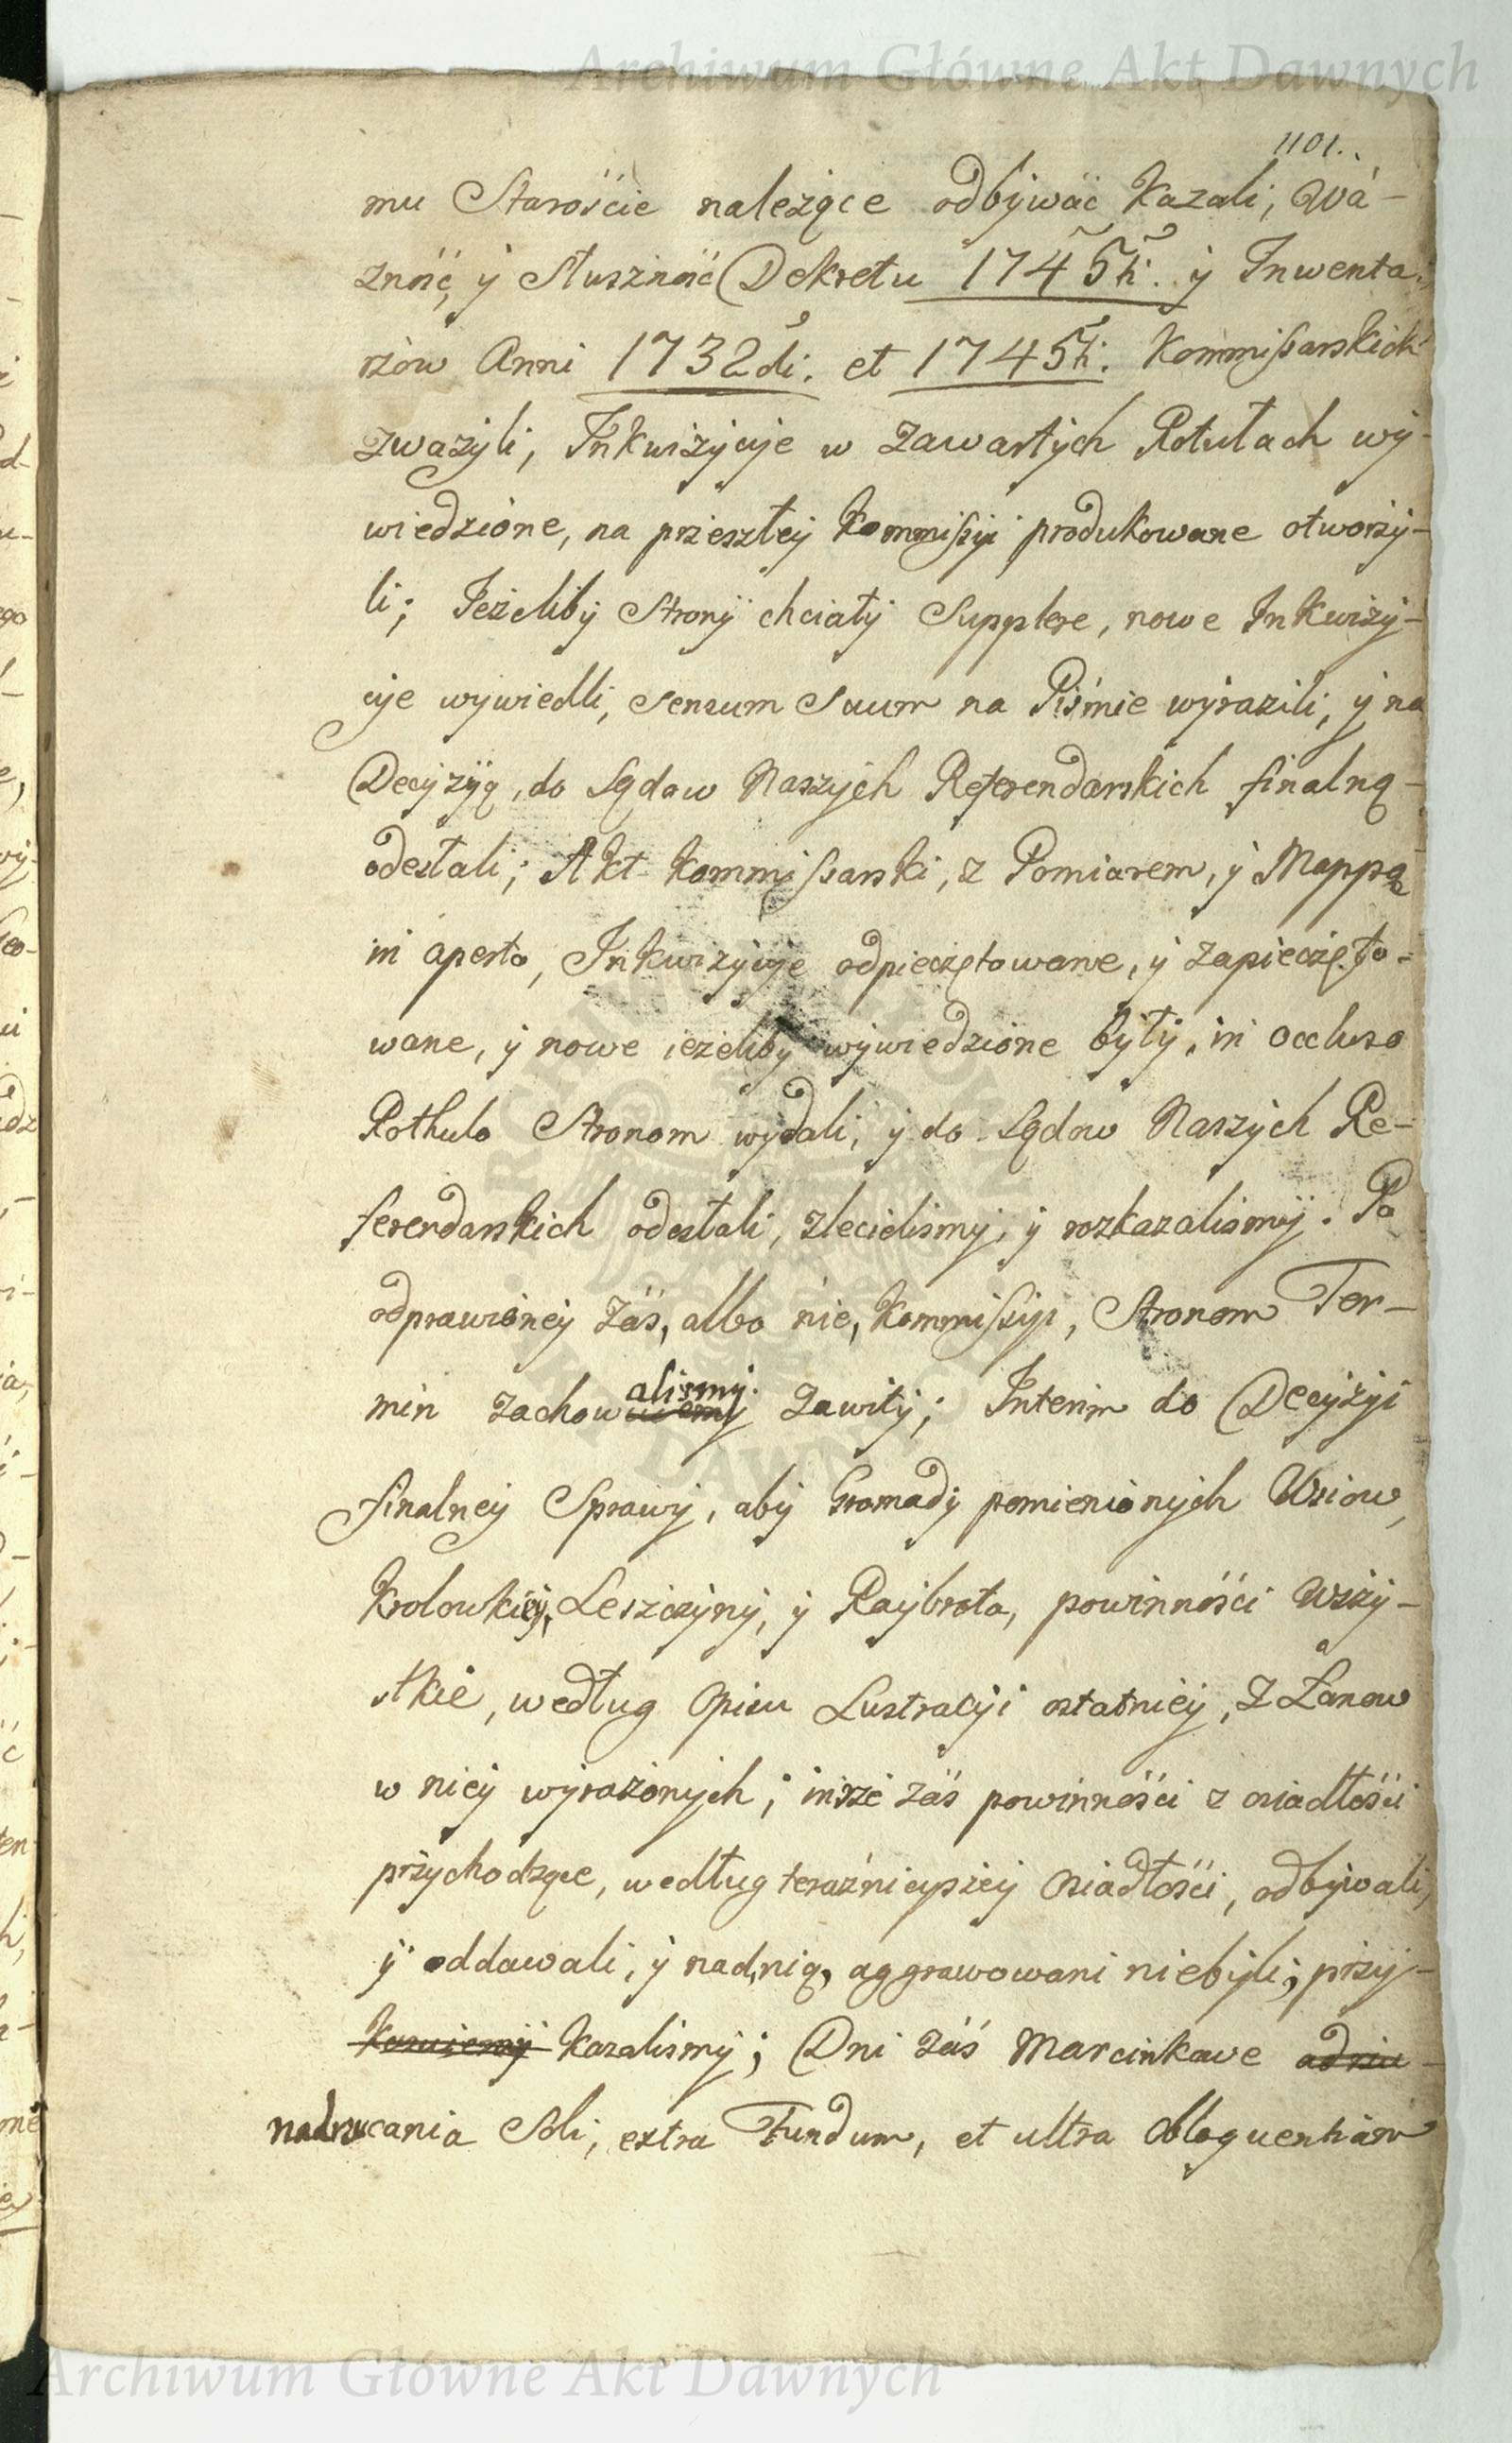 Archiwum Główne Akt Dawnych
1101.
mu Starośćie należące odbywać kazali, Wa-
żność, y Słuszność Dekretu 1745ti. y Inwenta-
rzow Anni 1732di. et 1745ti. Kommissarskich
zważyli, Inkwizycye w zawartych Rotułach wy-
wiedzione, na przeszłey Kommissyi produkowane otworzy-
li; Ieżeliby Strony chciały Supplere, nowe Inkwizy-
cye wywiedli, sensum Suum na Piśmie wyrazili, y na
Decyzyą, do Sądow Naszych Referendarskich finalną
odesłali; Akt Kommissarski, z Pomiarem, y Mappą
in aperto, Inkwizycye odpieczętowane, y zapieczęto-
wane, y nowe ieżeliby wywiedzione były, in occluso
Rothulo Stronom wydali, y do Sądow Naszych Re-
ferendarskich odesłali, zlecieliśmy, y rozkazaliśmy. Po
odprawioney zaś, albo nie, Kommissyi, Stronom Ter-
min zachowaliśmy. zawity; Interim do Decyzyi
finalney Sprawy, aby Gromady pomienionych Wsiow,
Krolowkiey, Leszczyny, y Raybrota, powinności wszy-
stkie, według Opisu Lustracyi ostatniey, z Łanow
w niey wyrażonych; insze zaś powinności z osiadłości
przychodzące, według teraźnieyszey Osiadłości, odbywali,
y oddawali, y nad nią, aggrawowani nie byli, przy-
kazuiemy kazaliśmy; Dni zaś Marcinkowe
nadrzucania Soli, extra Fundum, et ultra obloquentiam
ARCHIWUM GŁÓWNE AKT DAWNYCH
Archiwum Główne Akt Dawnych